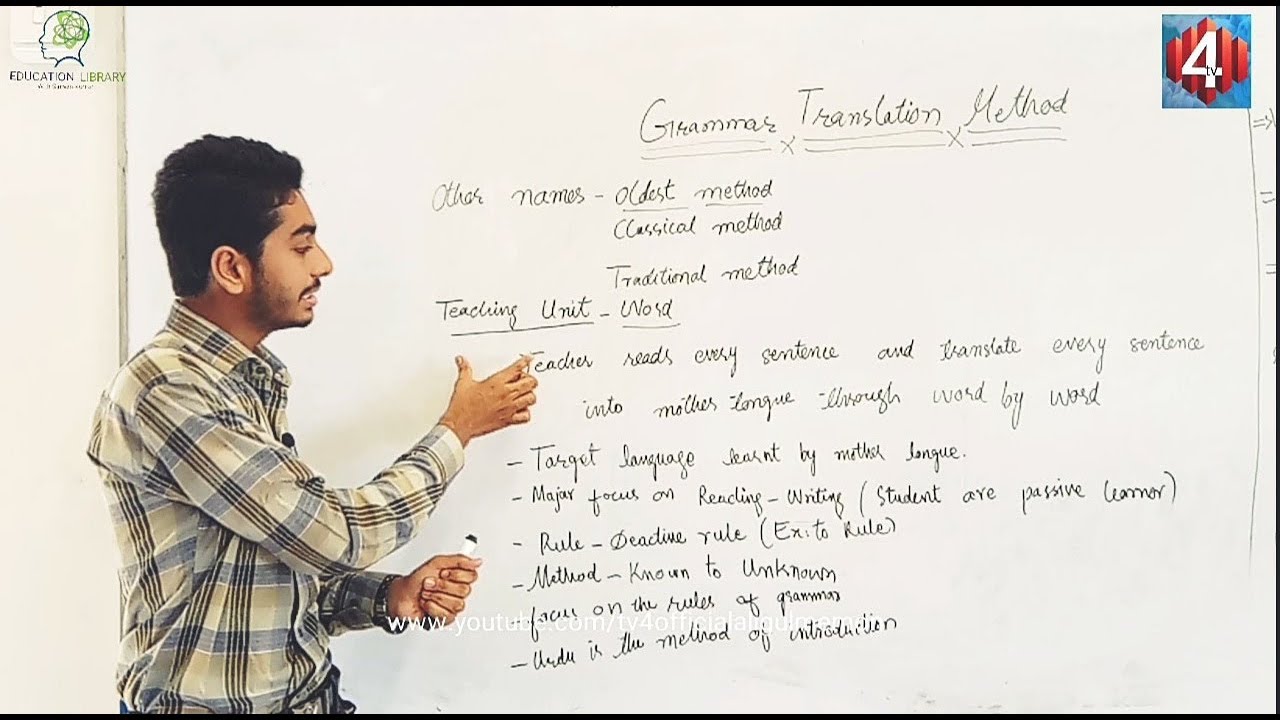 EDUCATION LIBRARY
4
tv
Grammar Translation Method
Other names - Oldest method
Classical method
Traditional method
Teaching Unit - Word
Teacher reads every sentence and translate every sentence
into mother tongue through word by word
- Target language learnt by mother tongue.
- Major focus on Reading - Writing (Student are passive learner)
- Rule - Deactive rule (Ex: to Rule)
- Method - Known to Unknown
focus on the rules of grammar
www.youtube.com/
- Urdu is the method of introduction
⇒
=
=